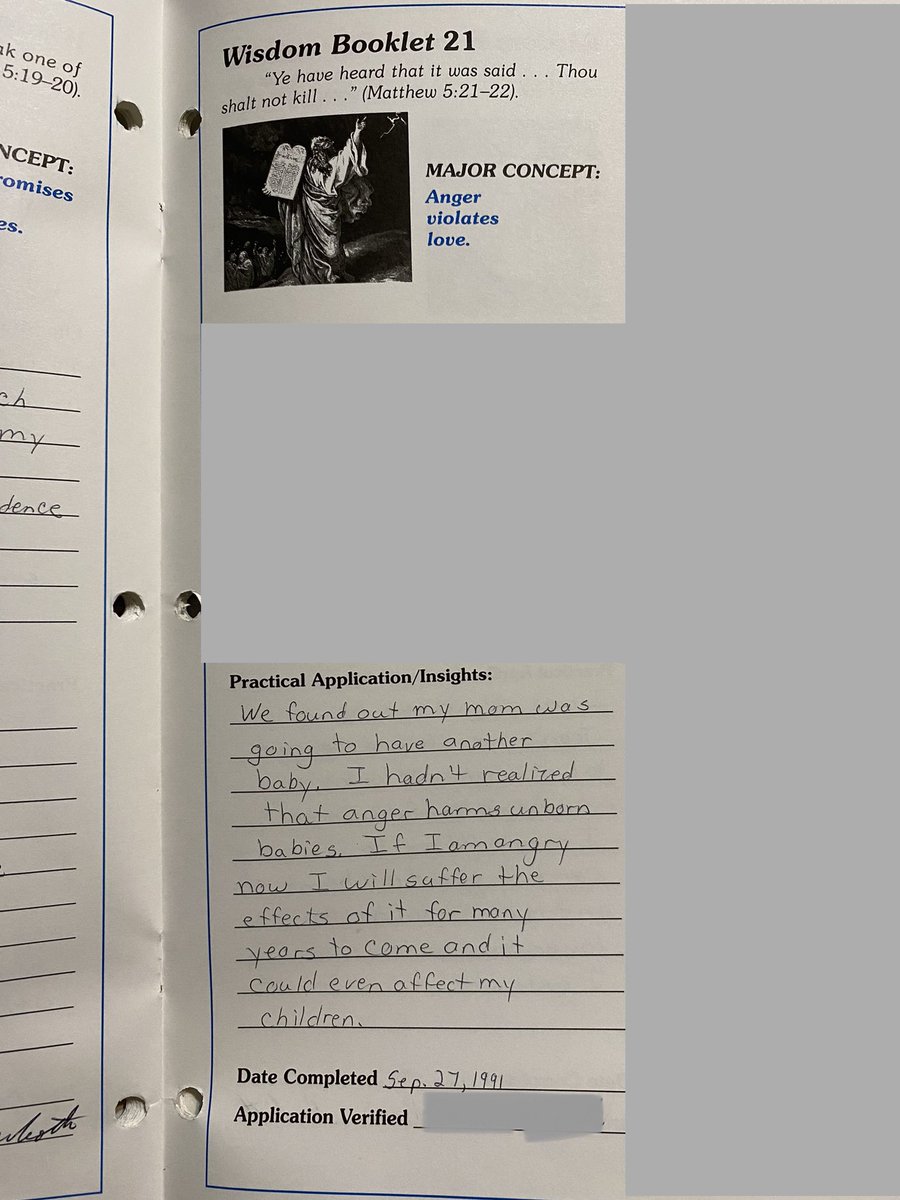 ak one of
5:19–20).
NCEPT:
romises
es.
ch
my
dence
Wisdom Booklet 21
"Ye have heard that it was said . . . Thou
shalt not kill . . ." (Matthew 5:21–22).
MAJOR CONCEPT:
Anger
violates
love.
Practical Application/Insights:
We found out my mom was
going to have another
baby. I hadn't realized
that anger harms unborn
babies. If I am angry
now I will suffer the
effects of it for many
years to come and it
could even affect my
children.
Date Completed Sep. 27, 1991
Application Verified